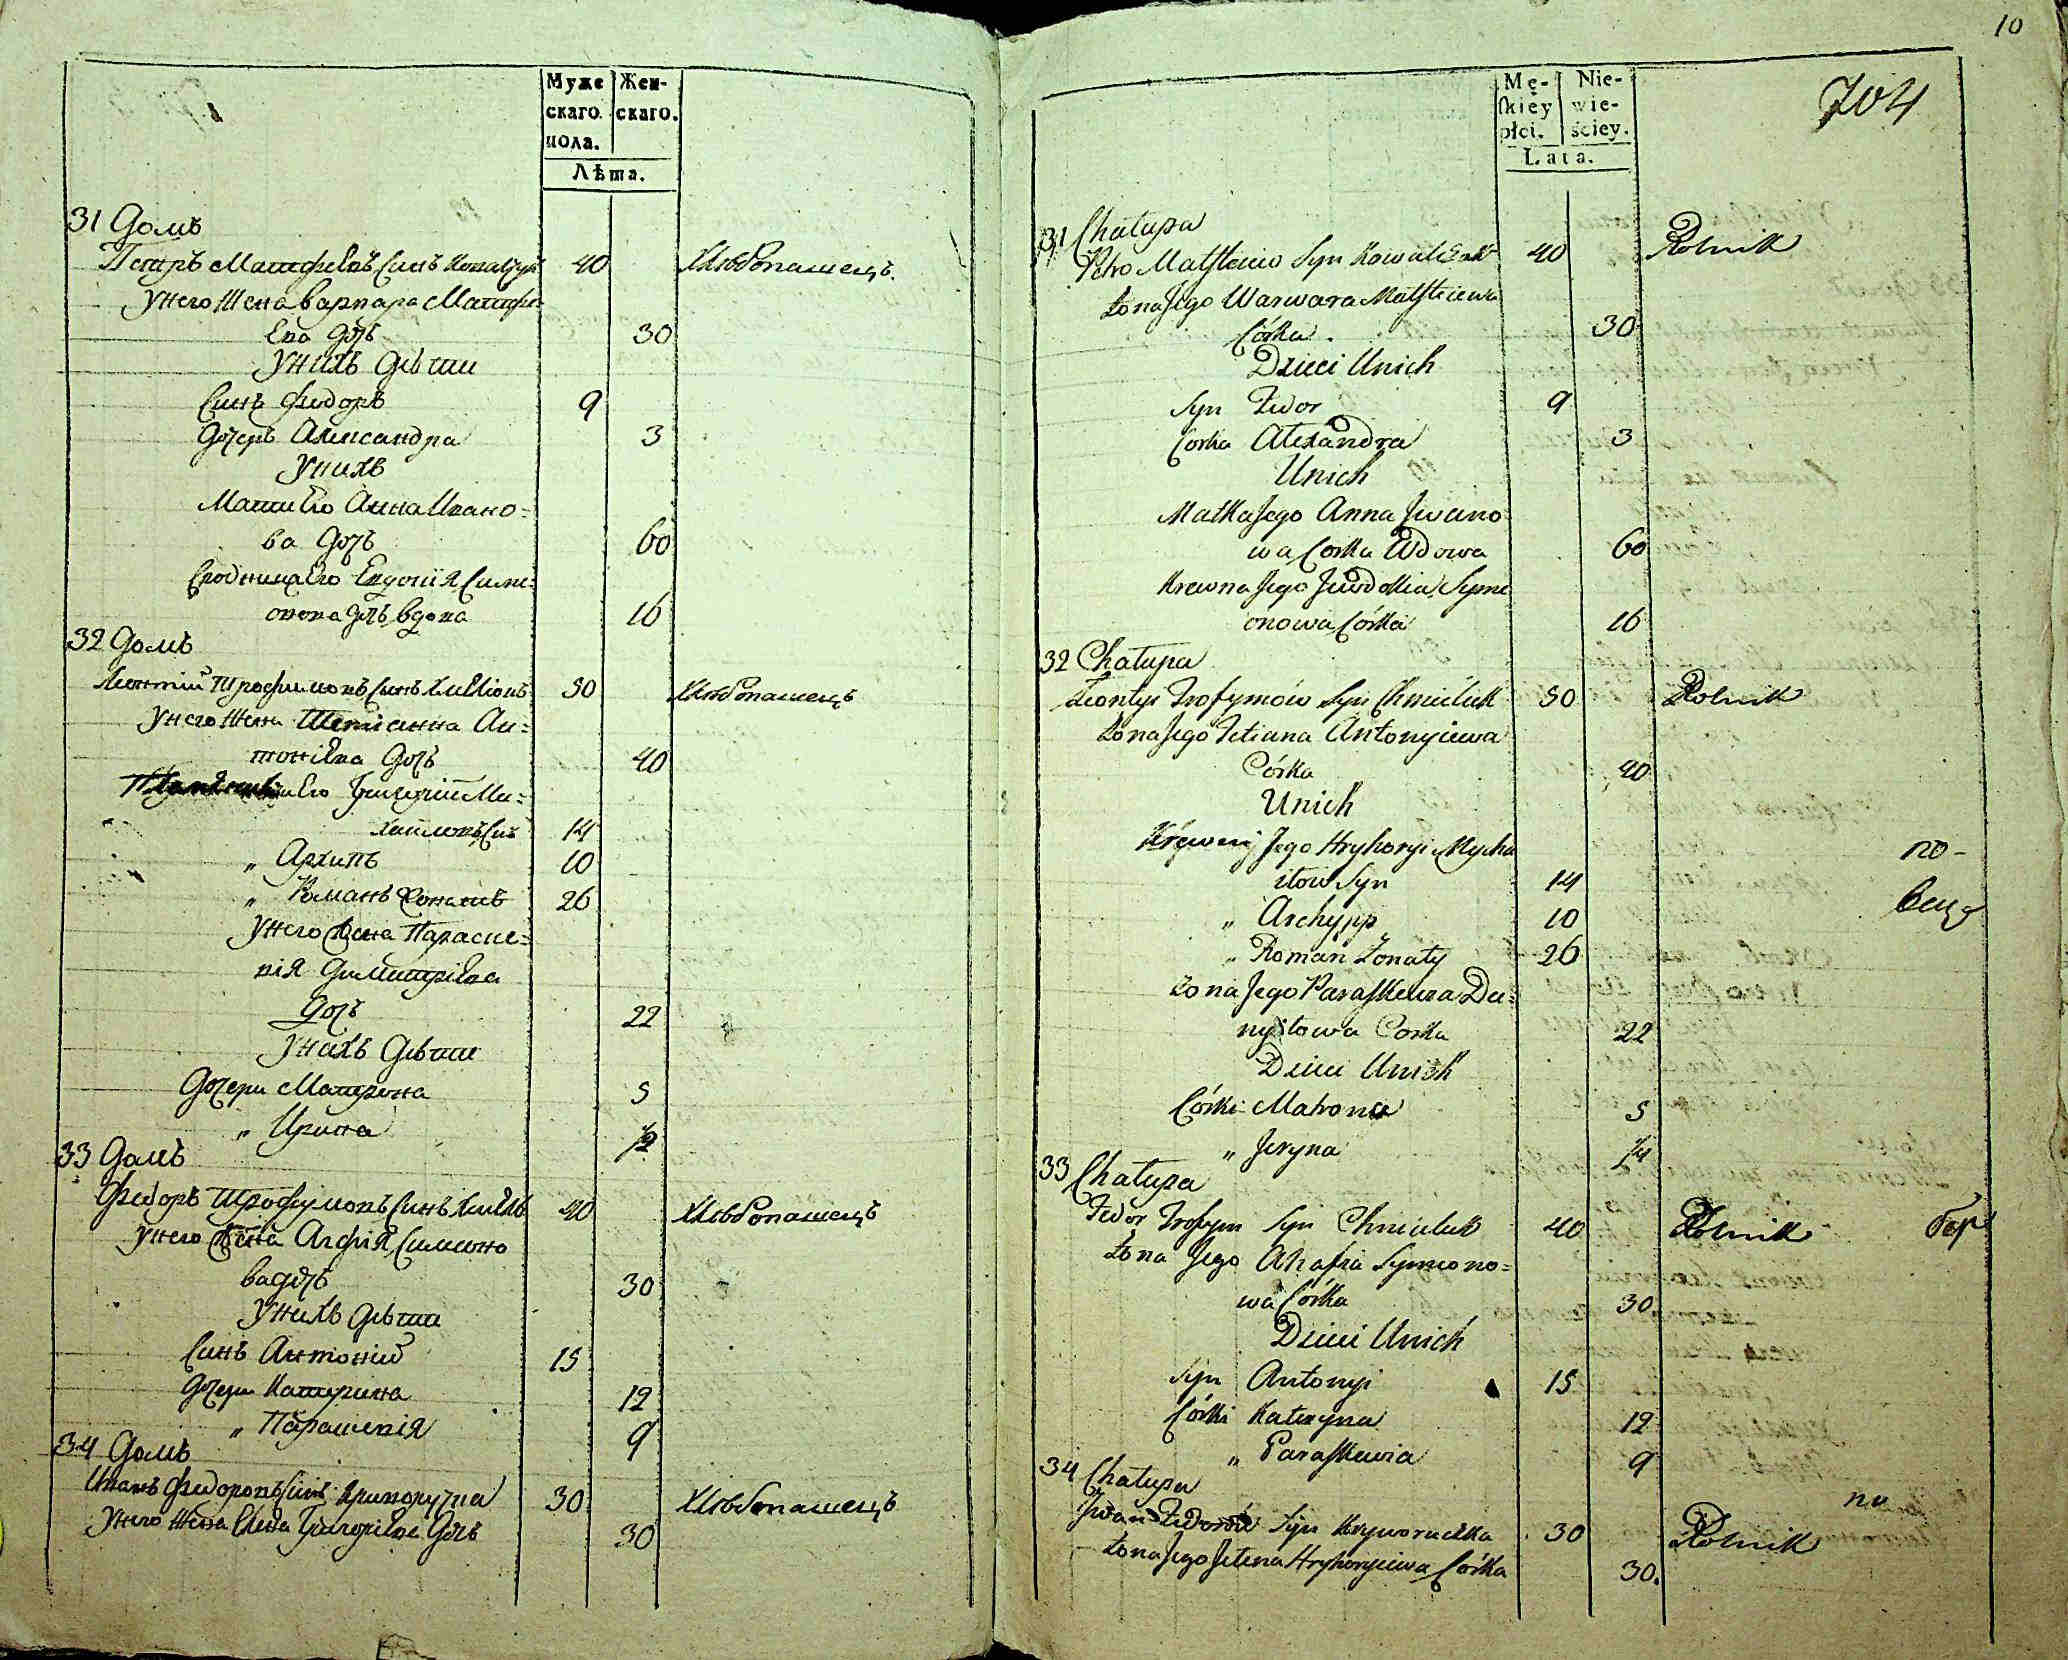 Муже
скаго
пола.
Жен-
скаго.
Лѣта.
31 Домъ
Петръ Матфеевъ Синъ Ковальчукъ 40 Хлѣбопашецъ.
У него Жена Варвара Матфе-
ева Дочь 30
У нихъ Дѣти
Синъ Федоръ 9
Дочерь Александра 3
У нихъ
Мати Его Анна Ивано=
ва Дочь 60
Сродница Его Евдокія Симе=
онова Дочь вдова 16
32 Домъ
Леонтій Трофимовъ Синъ 50 Хлѣбопашецъ
У него Жена Тетіанна Ан=
тоніева Дочь 40
Его Григорій Ми=
хайловъ Синъ 14
„ Архипъ 10
„ Романъ 26
У него Жена Параске=
вія Димитріева
Дочь 22
У нихъ Дѣти
Дочери Матрона 5
„ Ирина
33 Домъ
Федоръ Трофимовъ Синъ 40 Хлѣбопашецъ
У него Жена Агафія Симоно
ва Дочь 30
У нихъ Дѣти
Синъ Антоній 15
Дочери Катерина 12
„ Параскевія 9
34 Домъ
Иванъ Федоровъ Синъ Криворучка 30 Хлѣбопашецъ
У него Жена Елена Григоріева Дочь 30
10
704
Mę-
ſkiey
płci.
Nie-
wie-
ściey.
Lata.
31 Chałupa
Petro Matfieiow Syn Kowalczuk 40 Rolnik
Żona Jego Warwara Matfieiewa
Córka. 30
Dzieci Unich
Syn Fedor 9
Corka Alexandra 3
Unich
Matka Jego Anna Jwano
wa Corka Wdowa 60
Krewna Jego Jewdokia Syme
onowa Córka 16
32 Chałupa
Leontyi Trofymow Syn Chmieluk 50 Rolnik
Żona Jego Tetiana Antonyiewa
Córka 40
Unich
Krewny Jego Hryhoryi Mycha
iłow Syn 14
„ Archypp 10
„ Roman Żonaty 26
Żona Jego Paraſkewia Da=
nyiłowa Corka 22
Dzieci Unich
Córki Matrona 5
„ Jeryna
33 Chałupa
Fedor Trofym Syn Chmieluk 40 Rolnik
Żona Jego Ahafia Symono=
wa Córka 30
Dzieci Unich
Syn Antonyi 15
Córki Kateryna 12
„ Paraſkewia 9
34 Chałupa
Jwan Fedorów Syn Kryworuczka 30 Rolnik
Żona Jego Jelena Hryhoryiewa Córka 30.